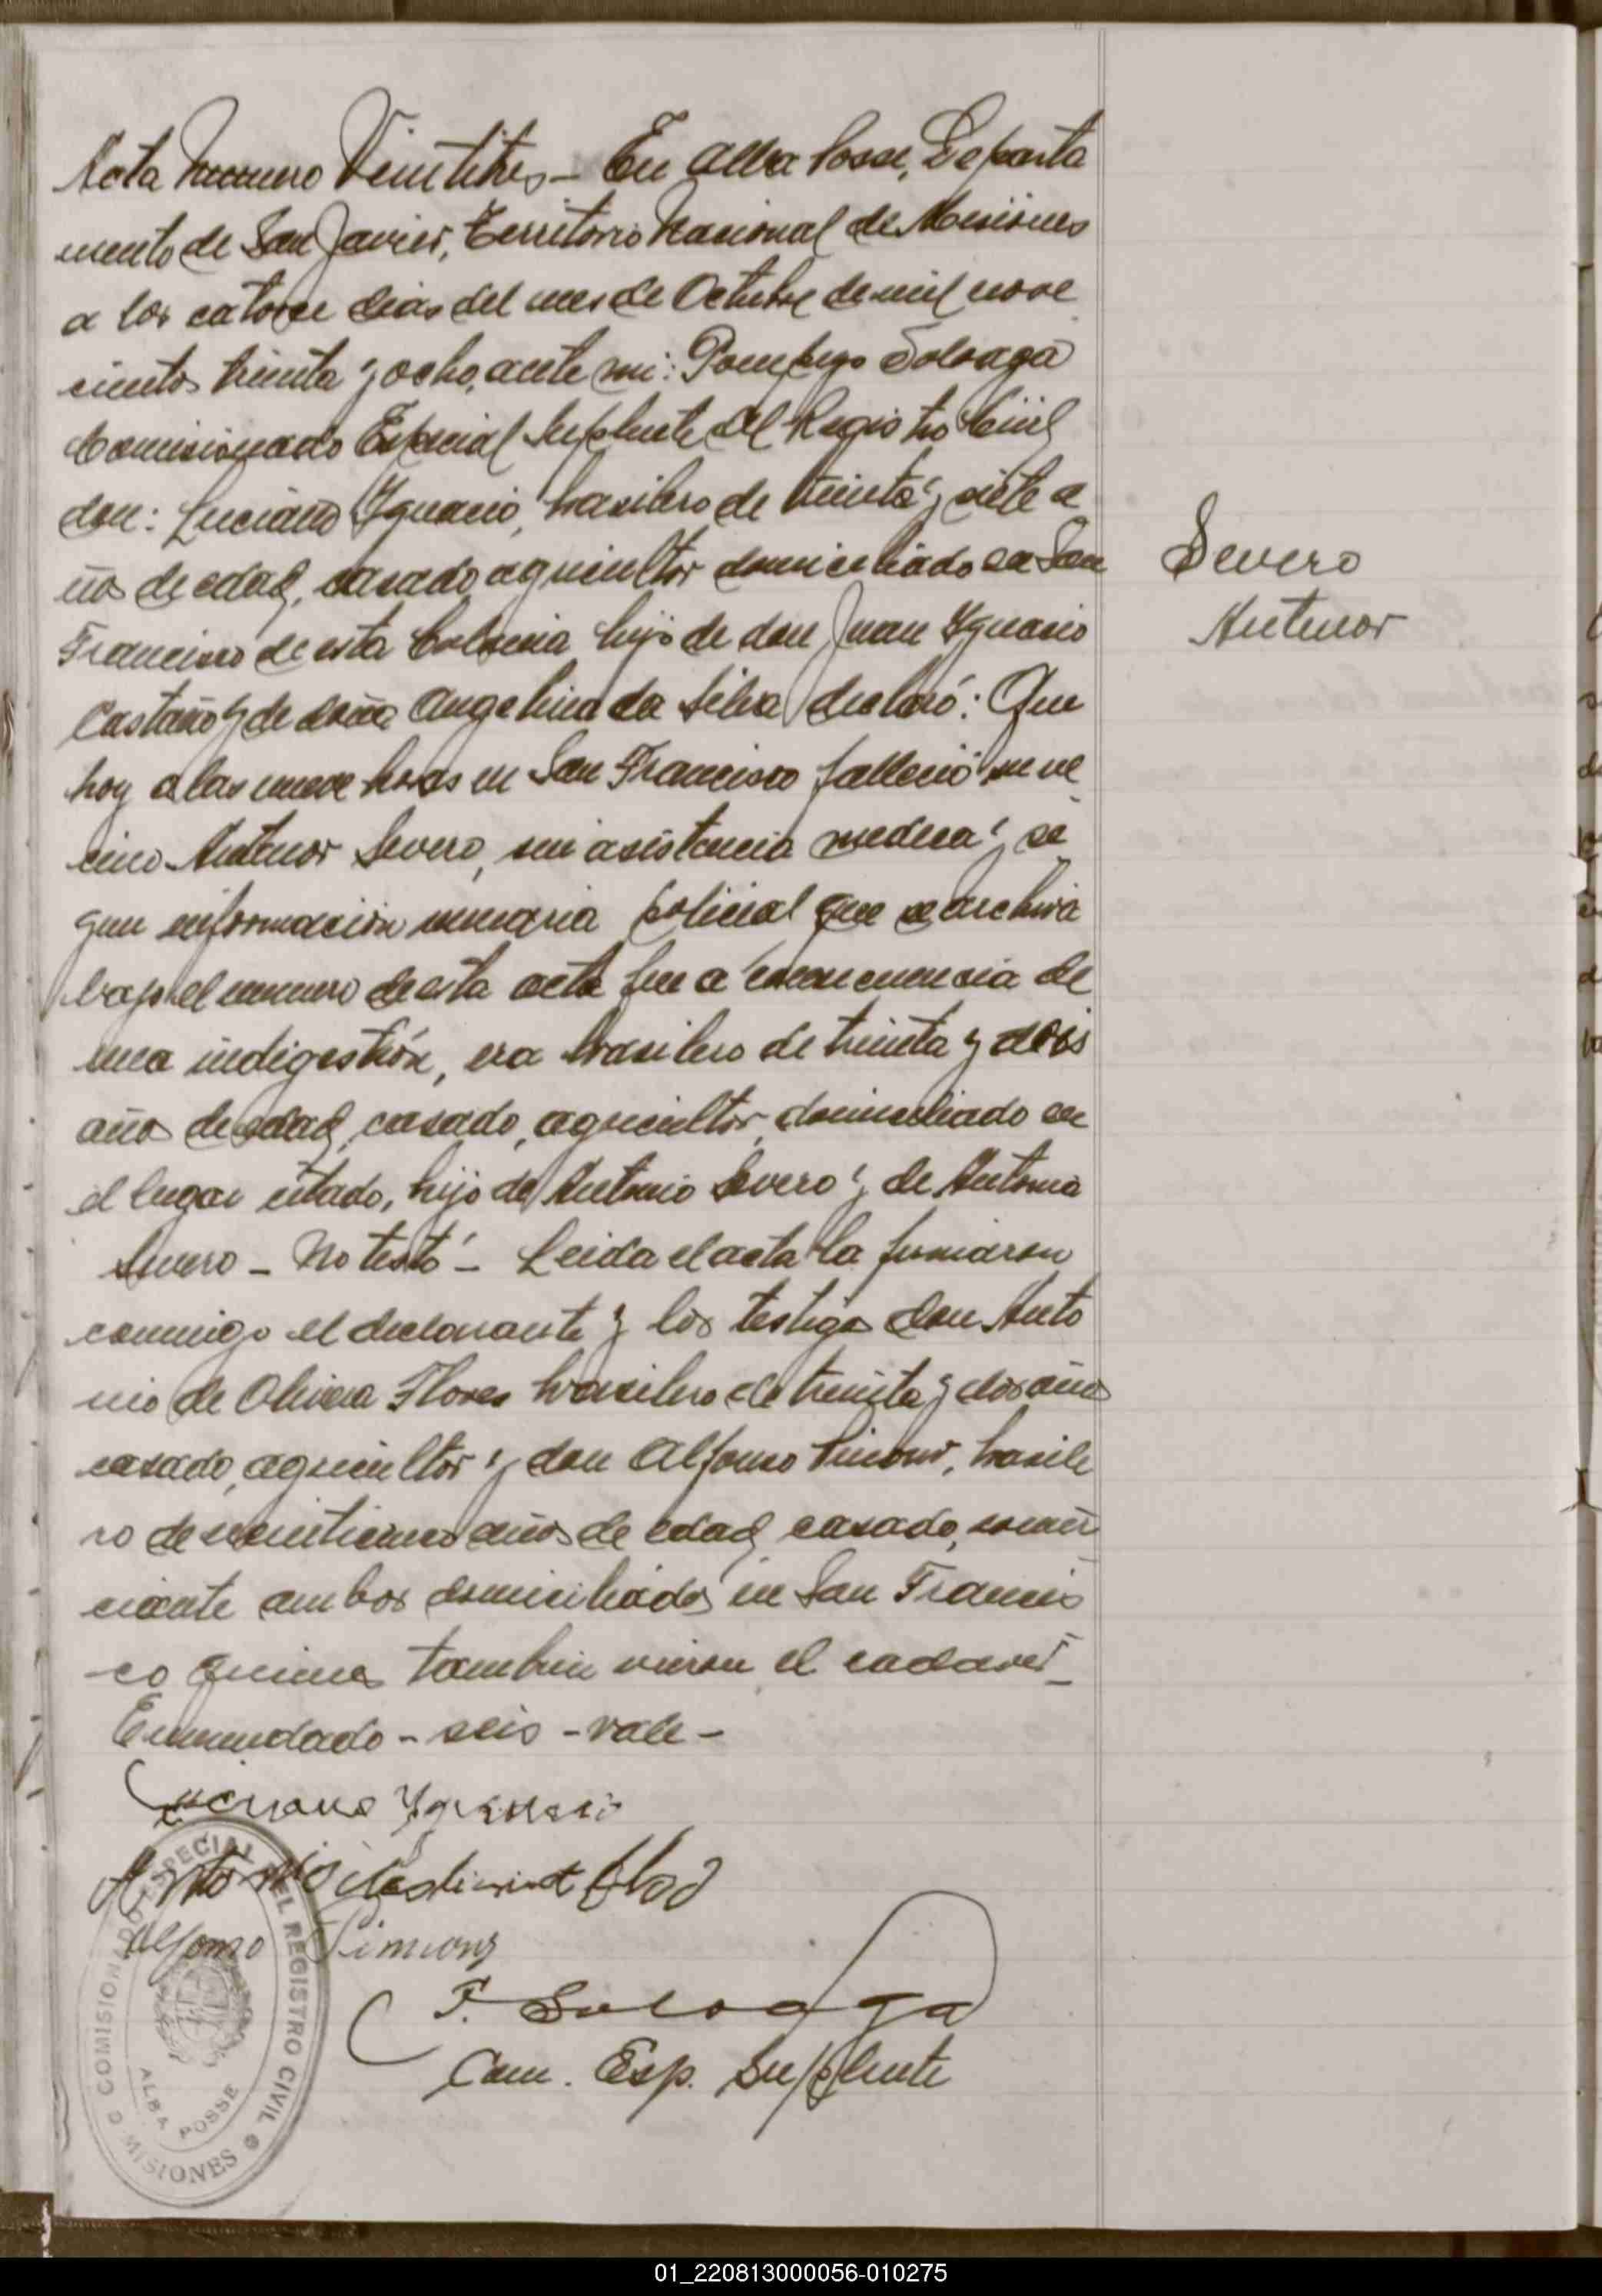 Acta Numero Veintitres - En Alba Posse, Departa
mento de San Javier, Territorio Nacional de Misiones
a los catorce dias del mes de Octubre de mil nove
cientos treinta y ocho, ante mi: Pompeyo Soloaga
Comisionado Especial Suplente del Registro Civil
don: Luciano Ygnacio, brasilero de treinta y siete a
ños de edad, casado, agricultor domiciliado en San
Francisco de esta Colonia hijo de don Juan Ygnacio
Castaño y de doña Angelina da Silva declaró: Que
hoy a las nueve horas en San Francisco falleció su ve
cino Antenor Severo, sin asistencia medica y se
gun información sumaria policial que se archiva
bajo el numero de esta acta fue a consecuencia de
una indigestión, era brasilero de treinta y
años de edad, casado, agricultor, domiciliado en
el lugar citado, hijo de Antonio Severo y de Antonia
Severo - No testó - Leida el acta la firmaron
conmigo el declarante y los testigos don Anto
nio de Olivera Flores brasilero de treinta y dos años
casado, agricultor y don Alfonso Simons, brasile
ro de veinticinco años de edad, casado, comer
ciante ambos domiciliados en San Francis
co quienes tambien vieron el cadaver -
Enmendado - seis - vale -
Luciano Ygnasio
Antonio
Alfonso Simions
P. Soloaga
Com. Esp. Suplente
Severo
Antenor
COMISIONADO ESPECIAL DEL REGISTRO CIVIL
ALBA POSSE
MISIONES
01_220813000056-010275